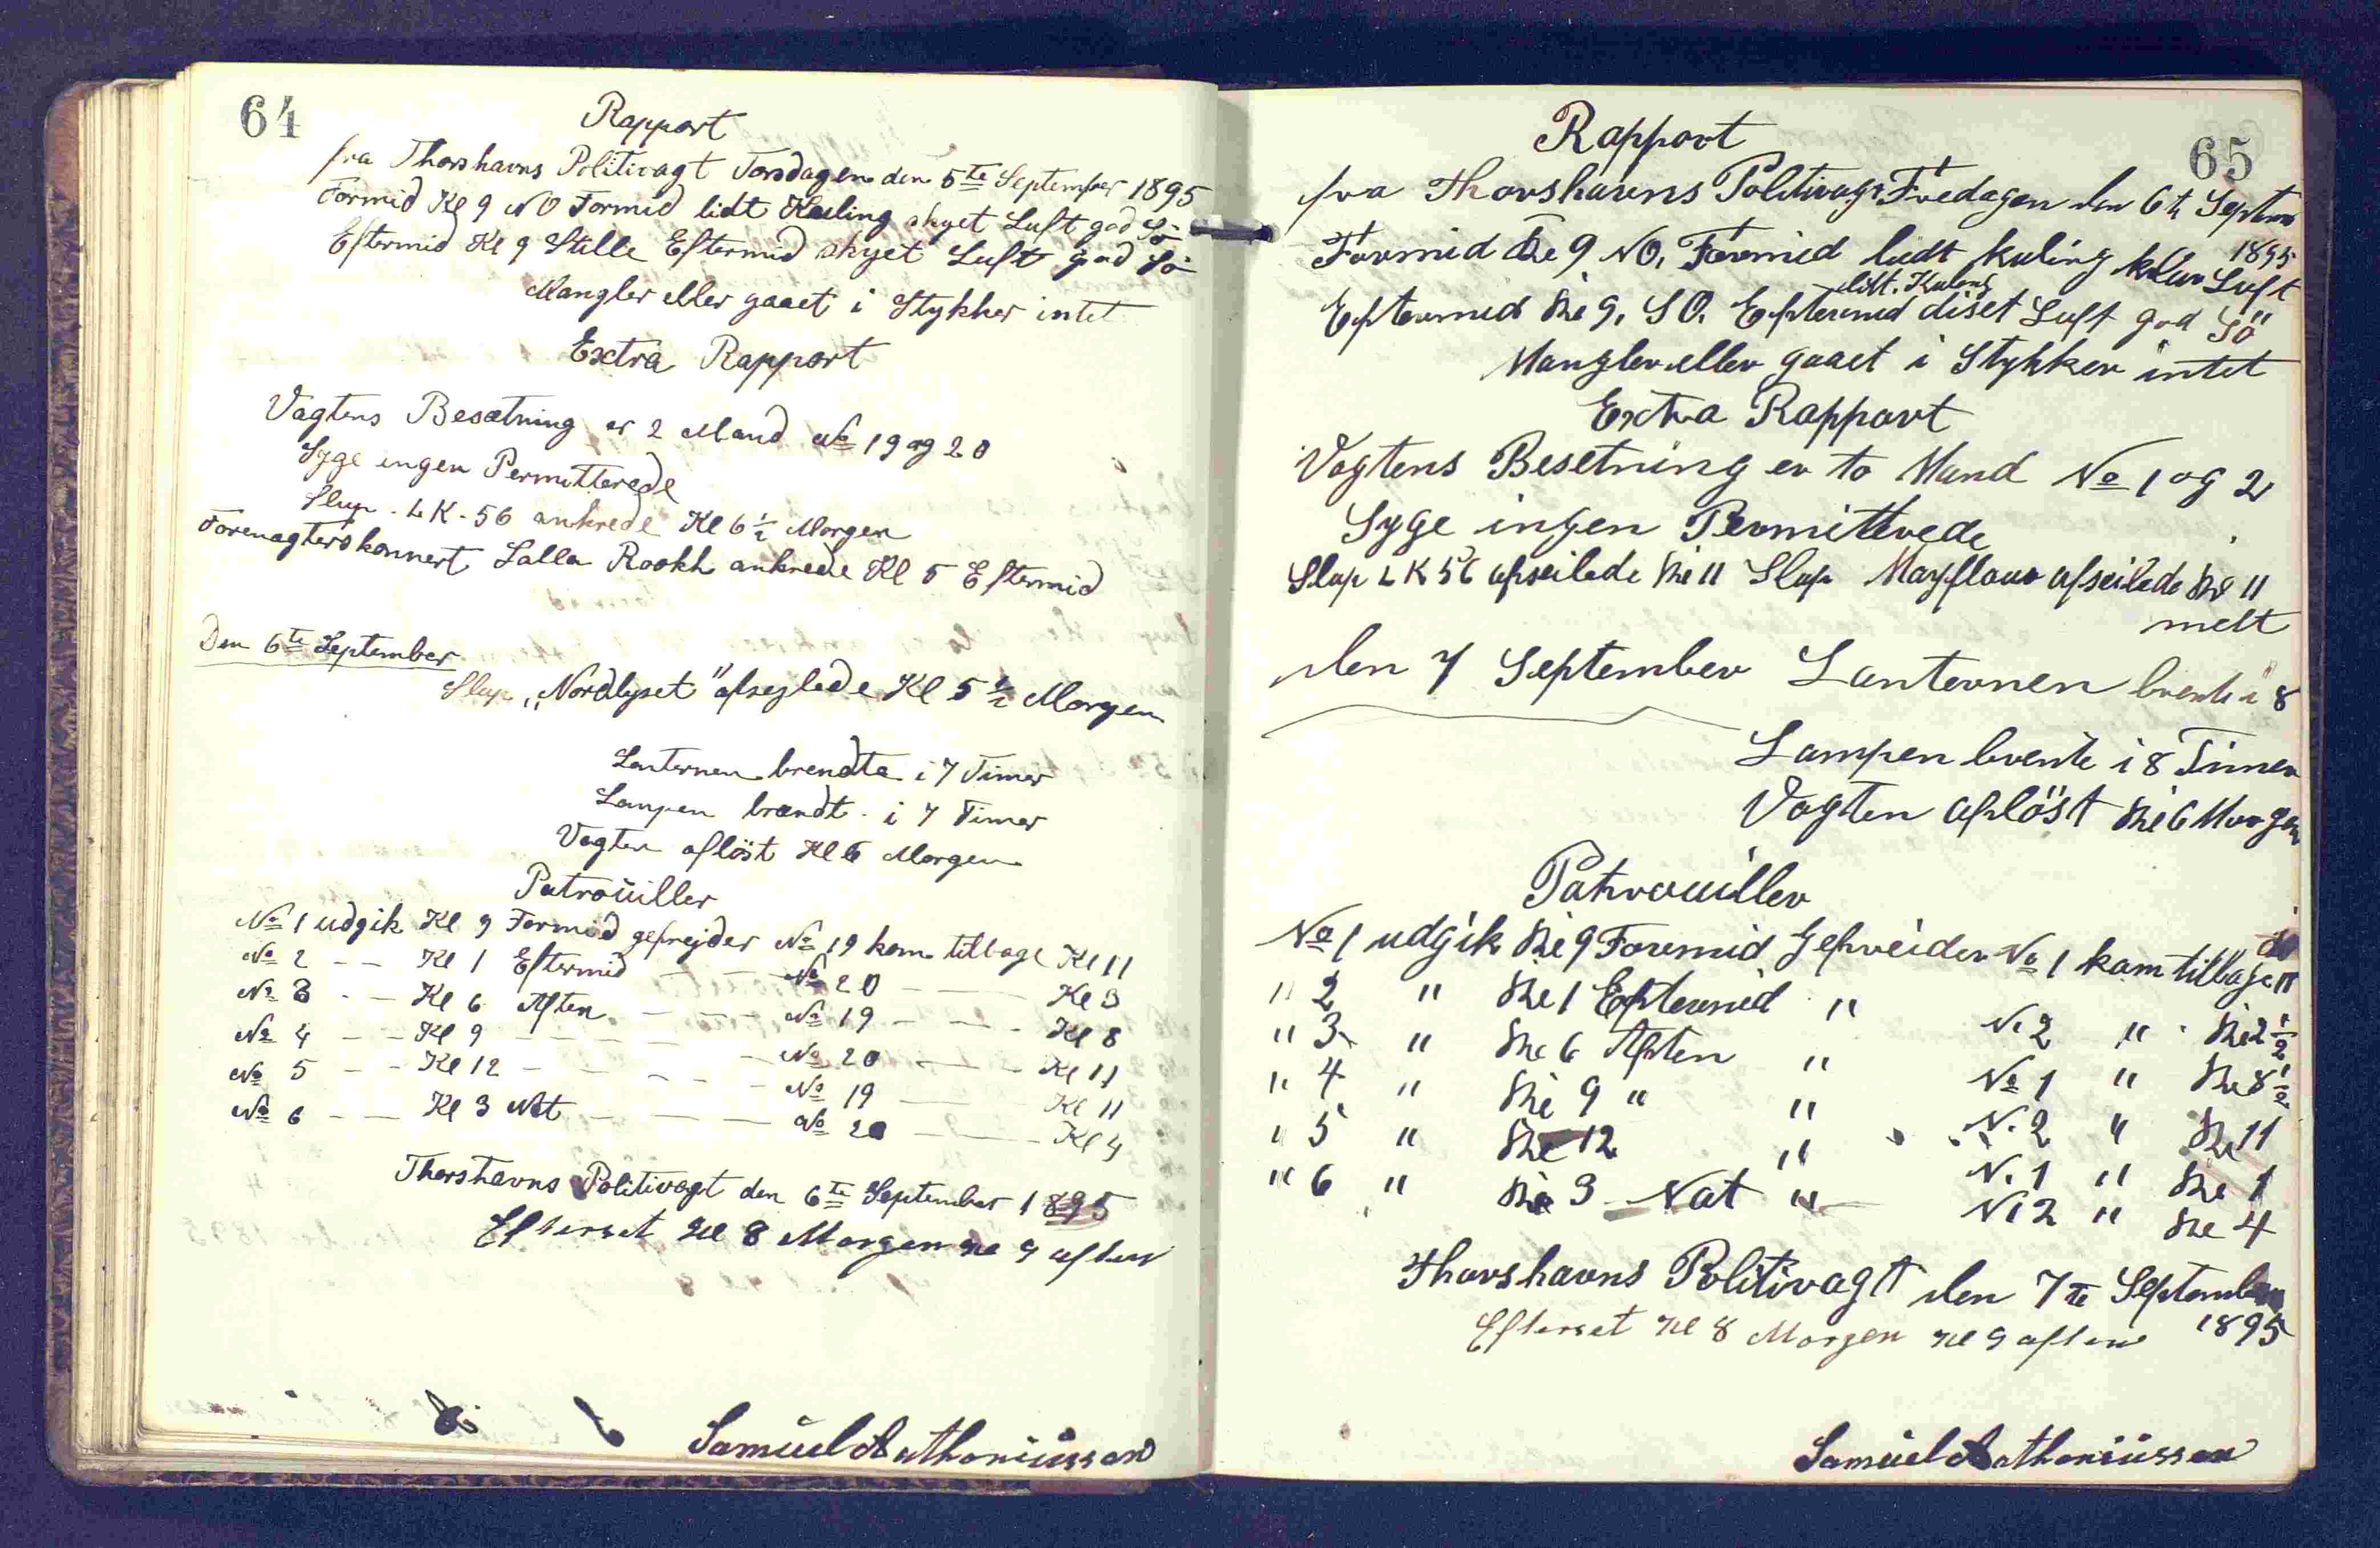 64
Rapport
fra Thorshavns Politivagt Torsdagen den 5te September 1895
Formid Kl 9 NO Formid lidt Kuling skyet Luft god Sö
Eftermid Kl 9 Stille Eftermid skyet Luft god Sö
Mangler eller gaaet i Stykker intet
Extra Rapport
Vagtens Besætning er 2 Mand No 19 og 20
Syge ingen Permitterede
Slup. LK. 56 ankrede Kl 6½ Morgen
Tremastskonnert Lalla Rookh ankrede Kl 5 Eftermid
Den 6te September
Slup „Nordlyset" afseglede Kl 5½ Morgen
Lanternen brendte i 7 Timer
Lampen brændt. i 7 Timer
Vagten aflöst Kl 6 Morgen
Patroüiller
No 1 udgik Kl 9 Formid gefrejder No 19 kom tilbage Kl 11
No 2 — — Kl 1 Eftermid — — — No 20 — — — Kl 3
No 3 - — Kl 6 Aften — — — No 19 — — — Kl 8
No 4 — — Kl 9 — — — — No 20 — — Kl 11
No 5 — — Kl 12 — — — — No 19 — — Kl 11
No 6 — — Kl 3 Nat — — — No 20 — — Kl 4
Thorshavns Politivagt den 6te September 1895
Efterset Kl 8 Morgen Kl 9 aften
Samüel Anthoniüssen
65
Rapport
fra Thorshavns Politivagt Fredagen den 6t Septem
1895
Formid Kl 9 NO, Formid lidt kuling klar Luft
lidt. Kuling
Eftermid Kl 9, SO. Eftermid diset Luft god Sö
Mangler eller gaaet i Stykker intet
Extra Rapport
Vagtens Besetning er to Mand No 1 og 2
Syge ingen Permitterede
Slup LK 56 afseilede Kl 11 Slup Mayflour afseilede Kl 11
den 7 September Lanternen brente i 8
Lampen brente i 8 Timer
Vagten aflöst Kl 6 Morgen
Patrouiller
No 1 udgik Kl 9 Foremid Gefreider No 1 kom tilbage 11
" 2 " Kl 1 Eftermid " N. 2 " Kl 2½
" 3 " Kl 6 Aften " No 1 " Kl 8½
" 4 " Kl 9 " " N. 2 " Kl 11
" 5 " Kl 12 " N. 1 " Kl 1
" 6 " Kl 3 Nat " N. 2 " Kl 4
Thorshavns Politivagt den 7te September
1895
Efterset Kl 8 Morgen Kl 9 aften
Samüel Anthoniüssen